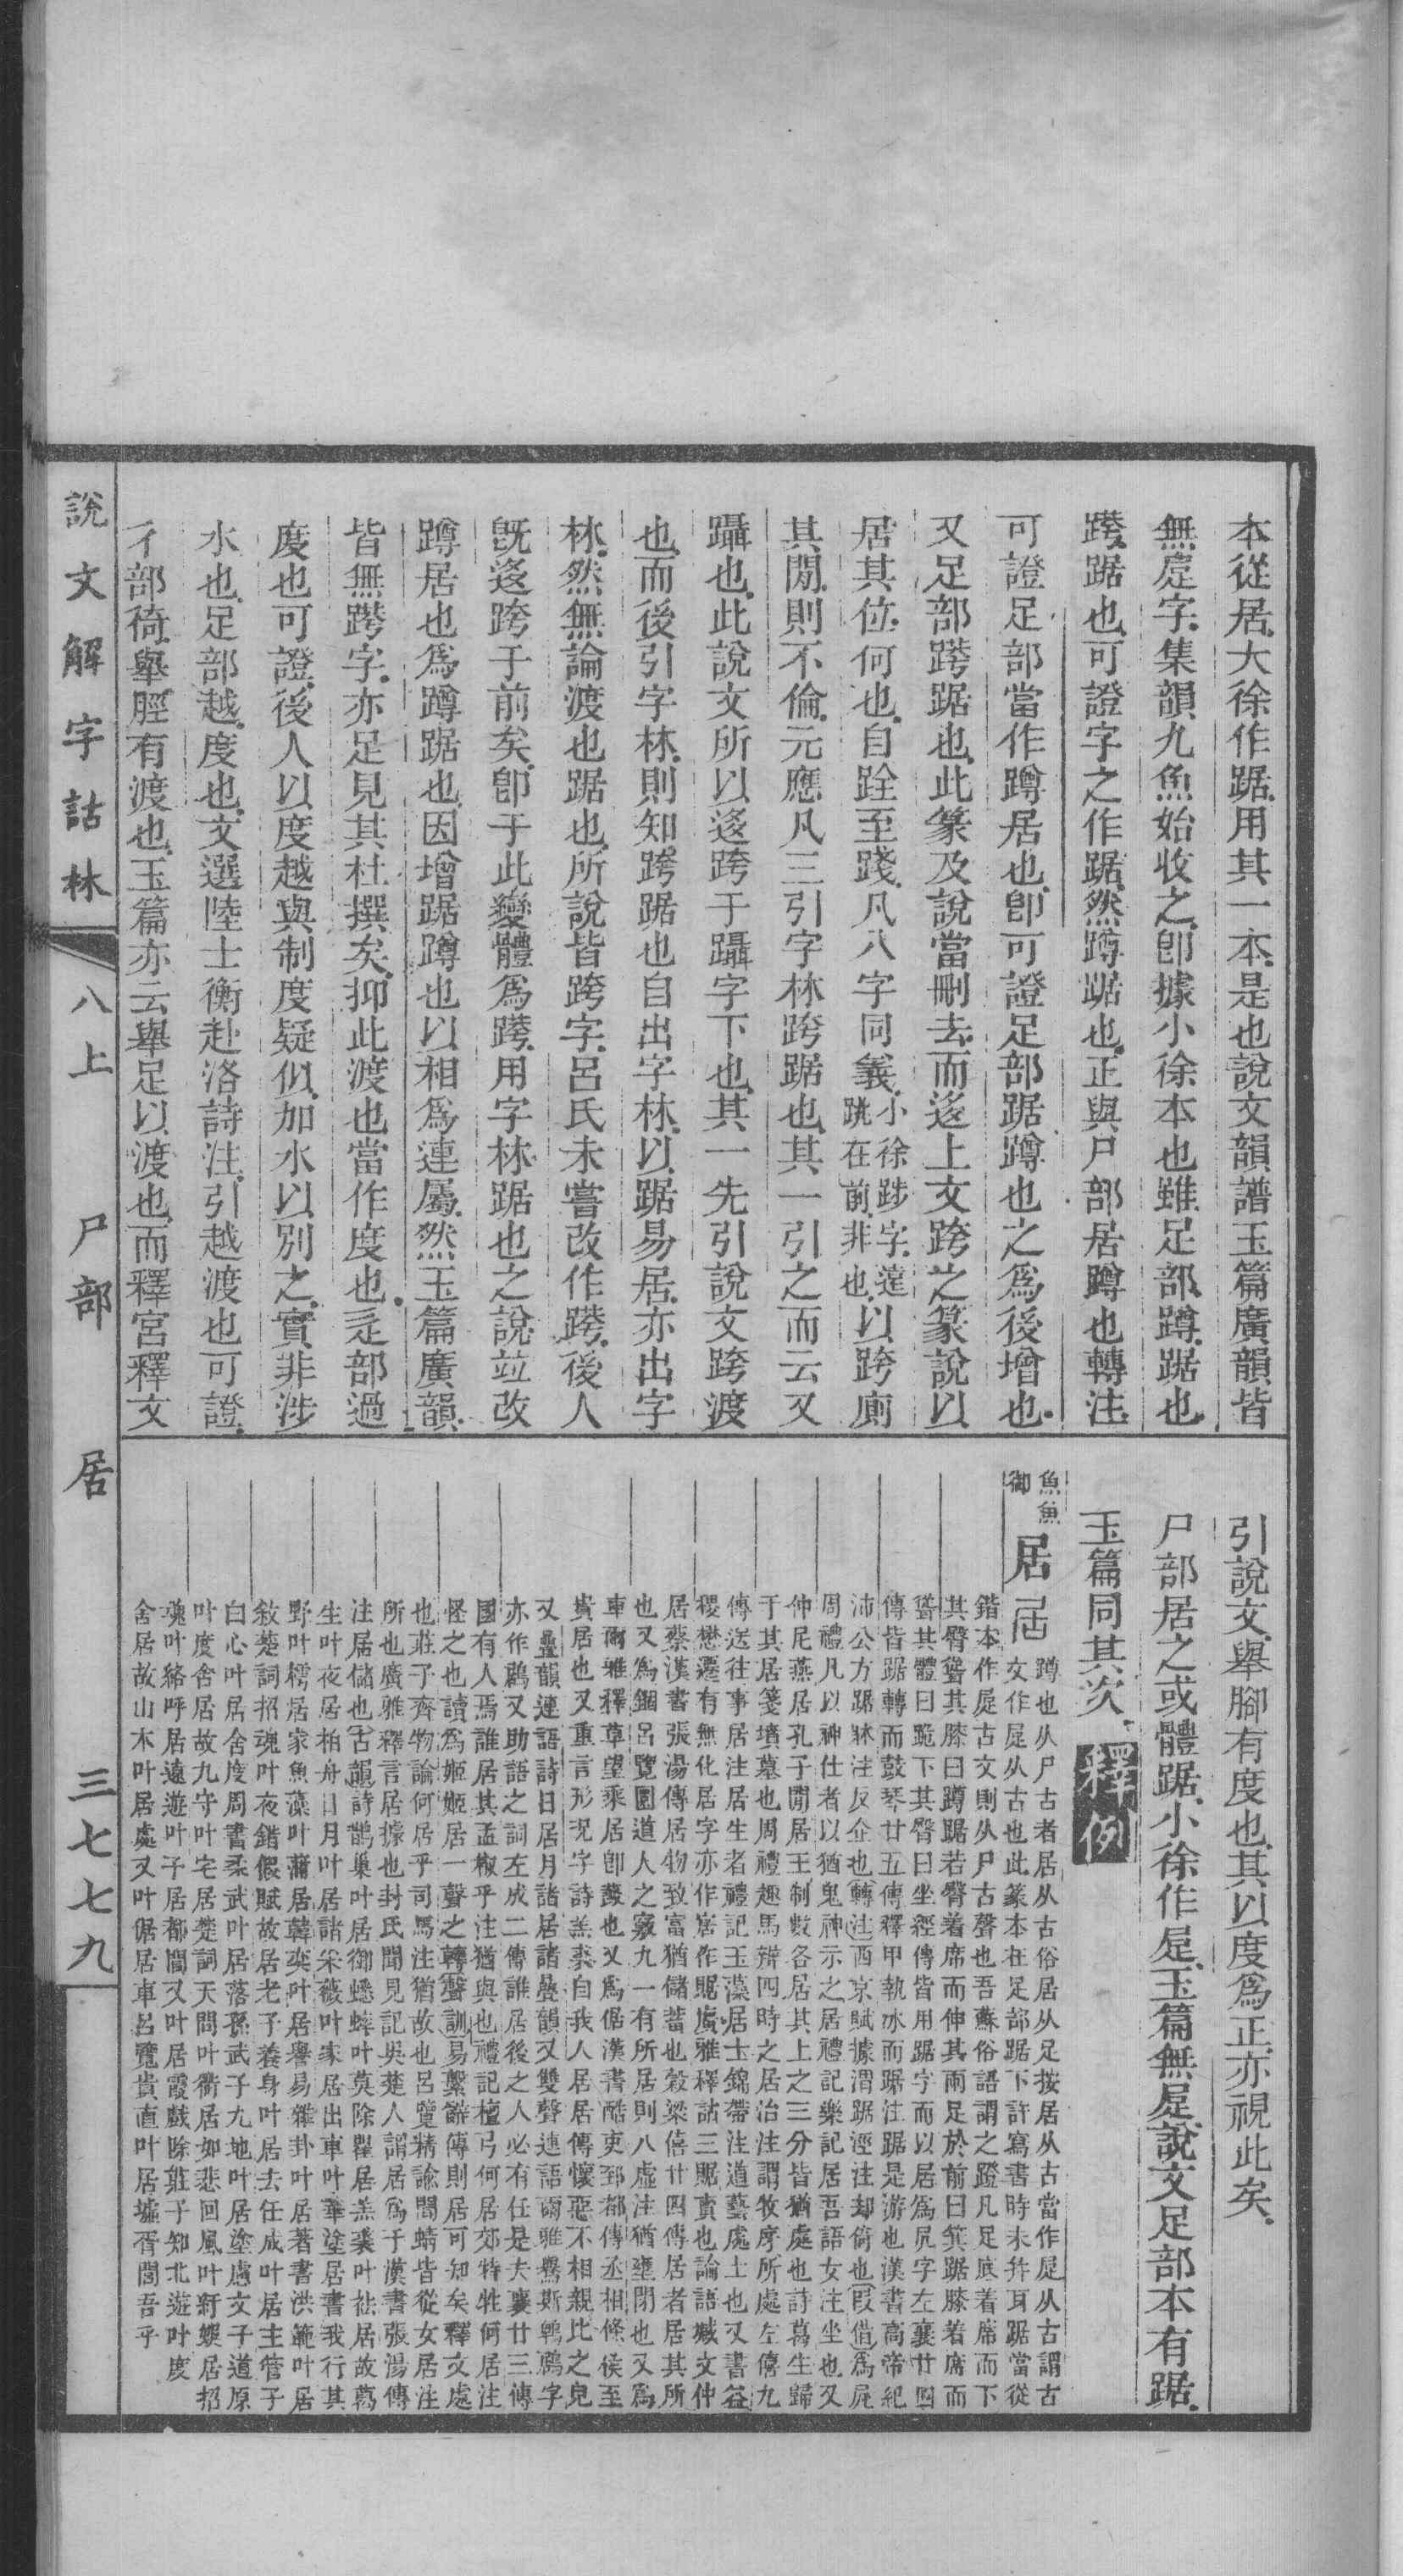 本從居大徐作踞用其一本是也說文韻譜玉篇廣韻皆
無㞐字集韻九魚始收之卽據小徐本也雖足部蹲踞也
踞也可證字之作踞然蹲踞也正與尸部居蹲也轉注
可證足部當作蹲居也卽可證足部踞蹲也之爲後增也
又足部踞也此篆及說當刪去而迻上文跨之篆說以
居其位何也自跧至踐凡八字同義小徐踄字蹥
跳在前非也以跨廁
其閒則不倫元應凡三引字林跨踞也其一引之而云又
躡也此說文所以迻跨于躡字下也其一先引說文跨渡
也而後引字林則知跨踞也自出字林以踞易居亦出字
林然無論渡也踞也所說皆跨字呂氏未嘗改作後人
旣迻跨于前矣卽于此變體爲用字林踞也之說竝改
蹲居也爲蹲踞也因增踞蹲也以相爲連屬然玉篇廣韻
皆無字亦足見其杜撰矣抑此渡也當作度也辵部過
度也可證後人以度越與制度疑似加水以別之實非涉
水也足部越度也文選陸士衡赴洛詩注引越渡也可證
彳部徛舉脛有渡也玉篇亦云舉足以渡也而釋宮釋文
引說文舉腳有度也其以度爲正亦視此矣
尸部居之或體踞小徐作㞐玉篇無㞐說文足部本有踞
玉篇同其次釋例
魚魚
御
居
蹲也从尸古者居从古俗居从足按居从古當作㞐从古謂古
文作㞐从古也此篆本在足部踞下許寫書時未幷耳踞當從
鍇本作㞐古文則从尸古聲也吾蘇俗語謂之蹬凡足底着席而下
其臀聳其膝曰蹲踞若臀着席而伸其兩足於前曰箕踞膝着席而
聳其體曰跪下其臀曰坐經傳皆用踞字而以居爲凥字左襄廿四
傳皆踞轉而鼓琴廿五傳釋甲執冰而踞注踞是游也漢書高帝紀
沛公方踞牀注反企也轉注西京賦據渭踞涇注却倚也叚借爲凥
周禮凡以神仕者以猶鬼神示之居禮記樂記居吾語女注坐也又
仲尼燕居孔子閒居王制數各居其上之三分皆猶處也詩葛生歸
于其居箋墳墓也周禮趣馬辨四時之居治注謂牧庌所處左僖九
傳送往事居注居生者禮記玉藻居士錦帶注道藝處士也又書益
稷懋遷有無化居字亦作㝒作賘廣雅釋詁三賘賣也論語臧文仲
居蔡漢書張湯傳居物致富猶儲蓄也穀梁僖廿四傳居者居其所
也又爲錮呂覽圜道人之竅九一有所居則八虛注猶壅閉也又爲
車爾雅釋草望乘居卽蘾也又爲倨漢書酷吏郅都傳丞相條侯至
貴居也又重言形況字詩羔裘自我人居居傳懷惡不相親比之皃
又疊韻連語詩日居月諸居諸疊韻又雙聲連語爾雅鸒斯鵯鶋字
亦作鶋又助語之詞左成二傳誰居後之人必有任是夫襄廿三傳
國有人焉誰居其孟椒乎注猶與也禮記檀弓何居郊特牲何居注
怪之也讀爲姬姬居一聲之轉聲訓易繫辭傳則居可知矣釋文處
也莊子齊物論何居乎司馬注猶故也呂覽精諭閒蜻皆從女居注
所也廣雅釋言居據也封氏聞見記吳楚人謂居爲于漢書張湯傳
注居儲也古韻詩鵲巢叶居御蟋蟀叶莫除瞿居羔裘叶袪居故葛
生叶夜居柏舟日月叶居諸采薇叶家居出車叶華塗居書我行其
野叶樗居家魚藻叶蒲居韓奕叶居譽易雜卦叶居著書洪範叶居
敍楚詞招魂叶夜錯假賦故居老子養身叶居去任成叶居主管子
白心叶居舍度周書柔武叶居落孫武子九地叶居塗慮文子道原
叶度舍居故九守叶宅居楚詞天問叶衢居如悲回風叶紆娛居招
魂叶絡呼居遠遊叶予居都閒又叶居霞戲除莊子知北遊叶度
舍居故山木叶居處又叶倨居車呂覽貴直叶居墟胥閭吾乎
說文解字詁林
八上
尸部
居
三七七九